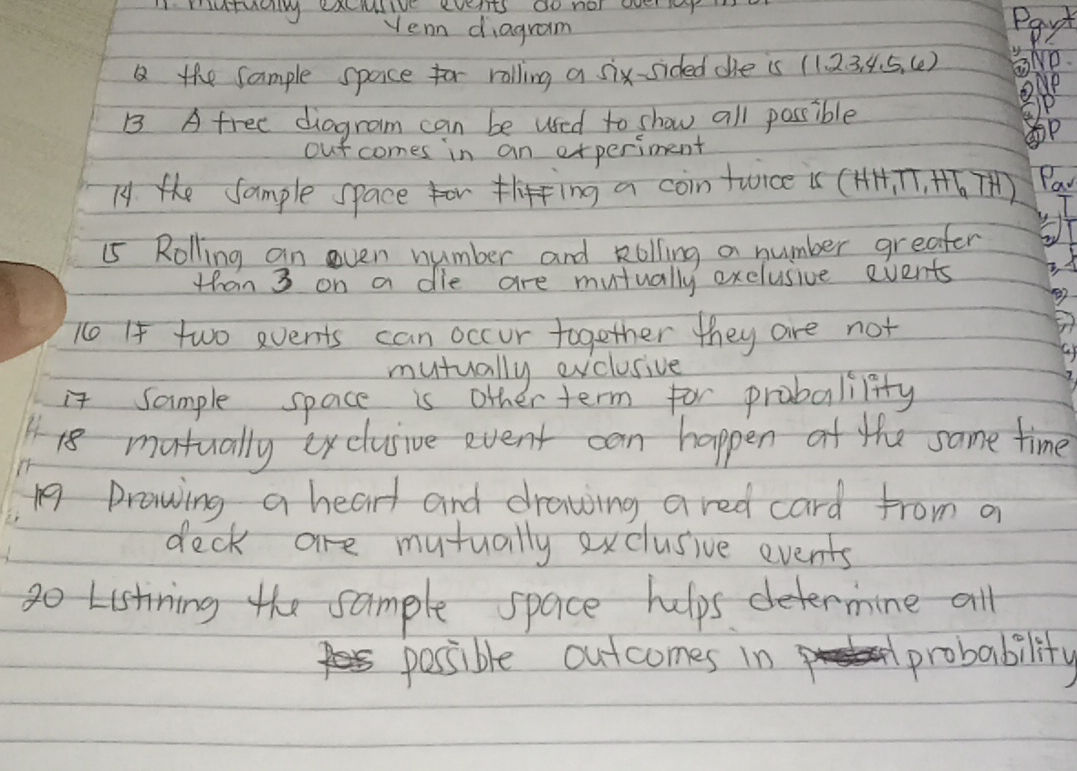 11. mutually exclusive events do not overlap in a
Venn diagram
12 the sample space for rolling a six-sided die is (1,2,3,4,5,6)
13 A tree diagram can be used to show all possible
outcomes in an experiment
14. the sample space for flipping a coin twice is (HH,TT,HT,TH)
15 Rolling an even number and Rolling a number greater
than 3 on a die are mutually exclusive events
16 If two events can occur together they are not
mutually exclusive
17 Sample space is other term for probalility
18 mutually exclusive event can happen at the same time
19 Drawing a heart and drawing a red card from a
deck are mutually exclusive events
20 Listining the sample space helps determine all
possible outcomes in probability
Part
NP
NP
P
P